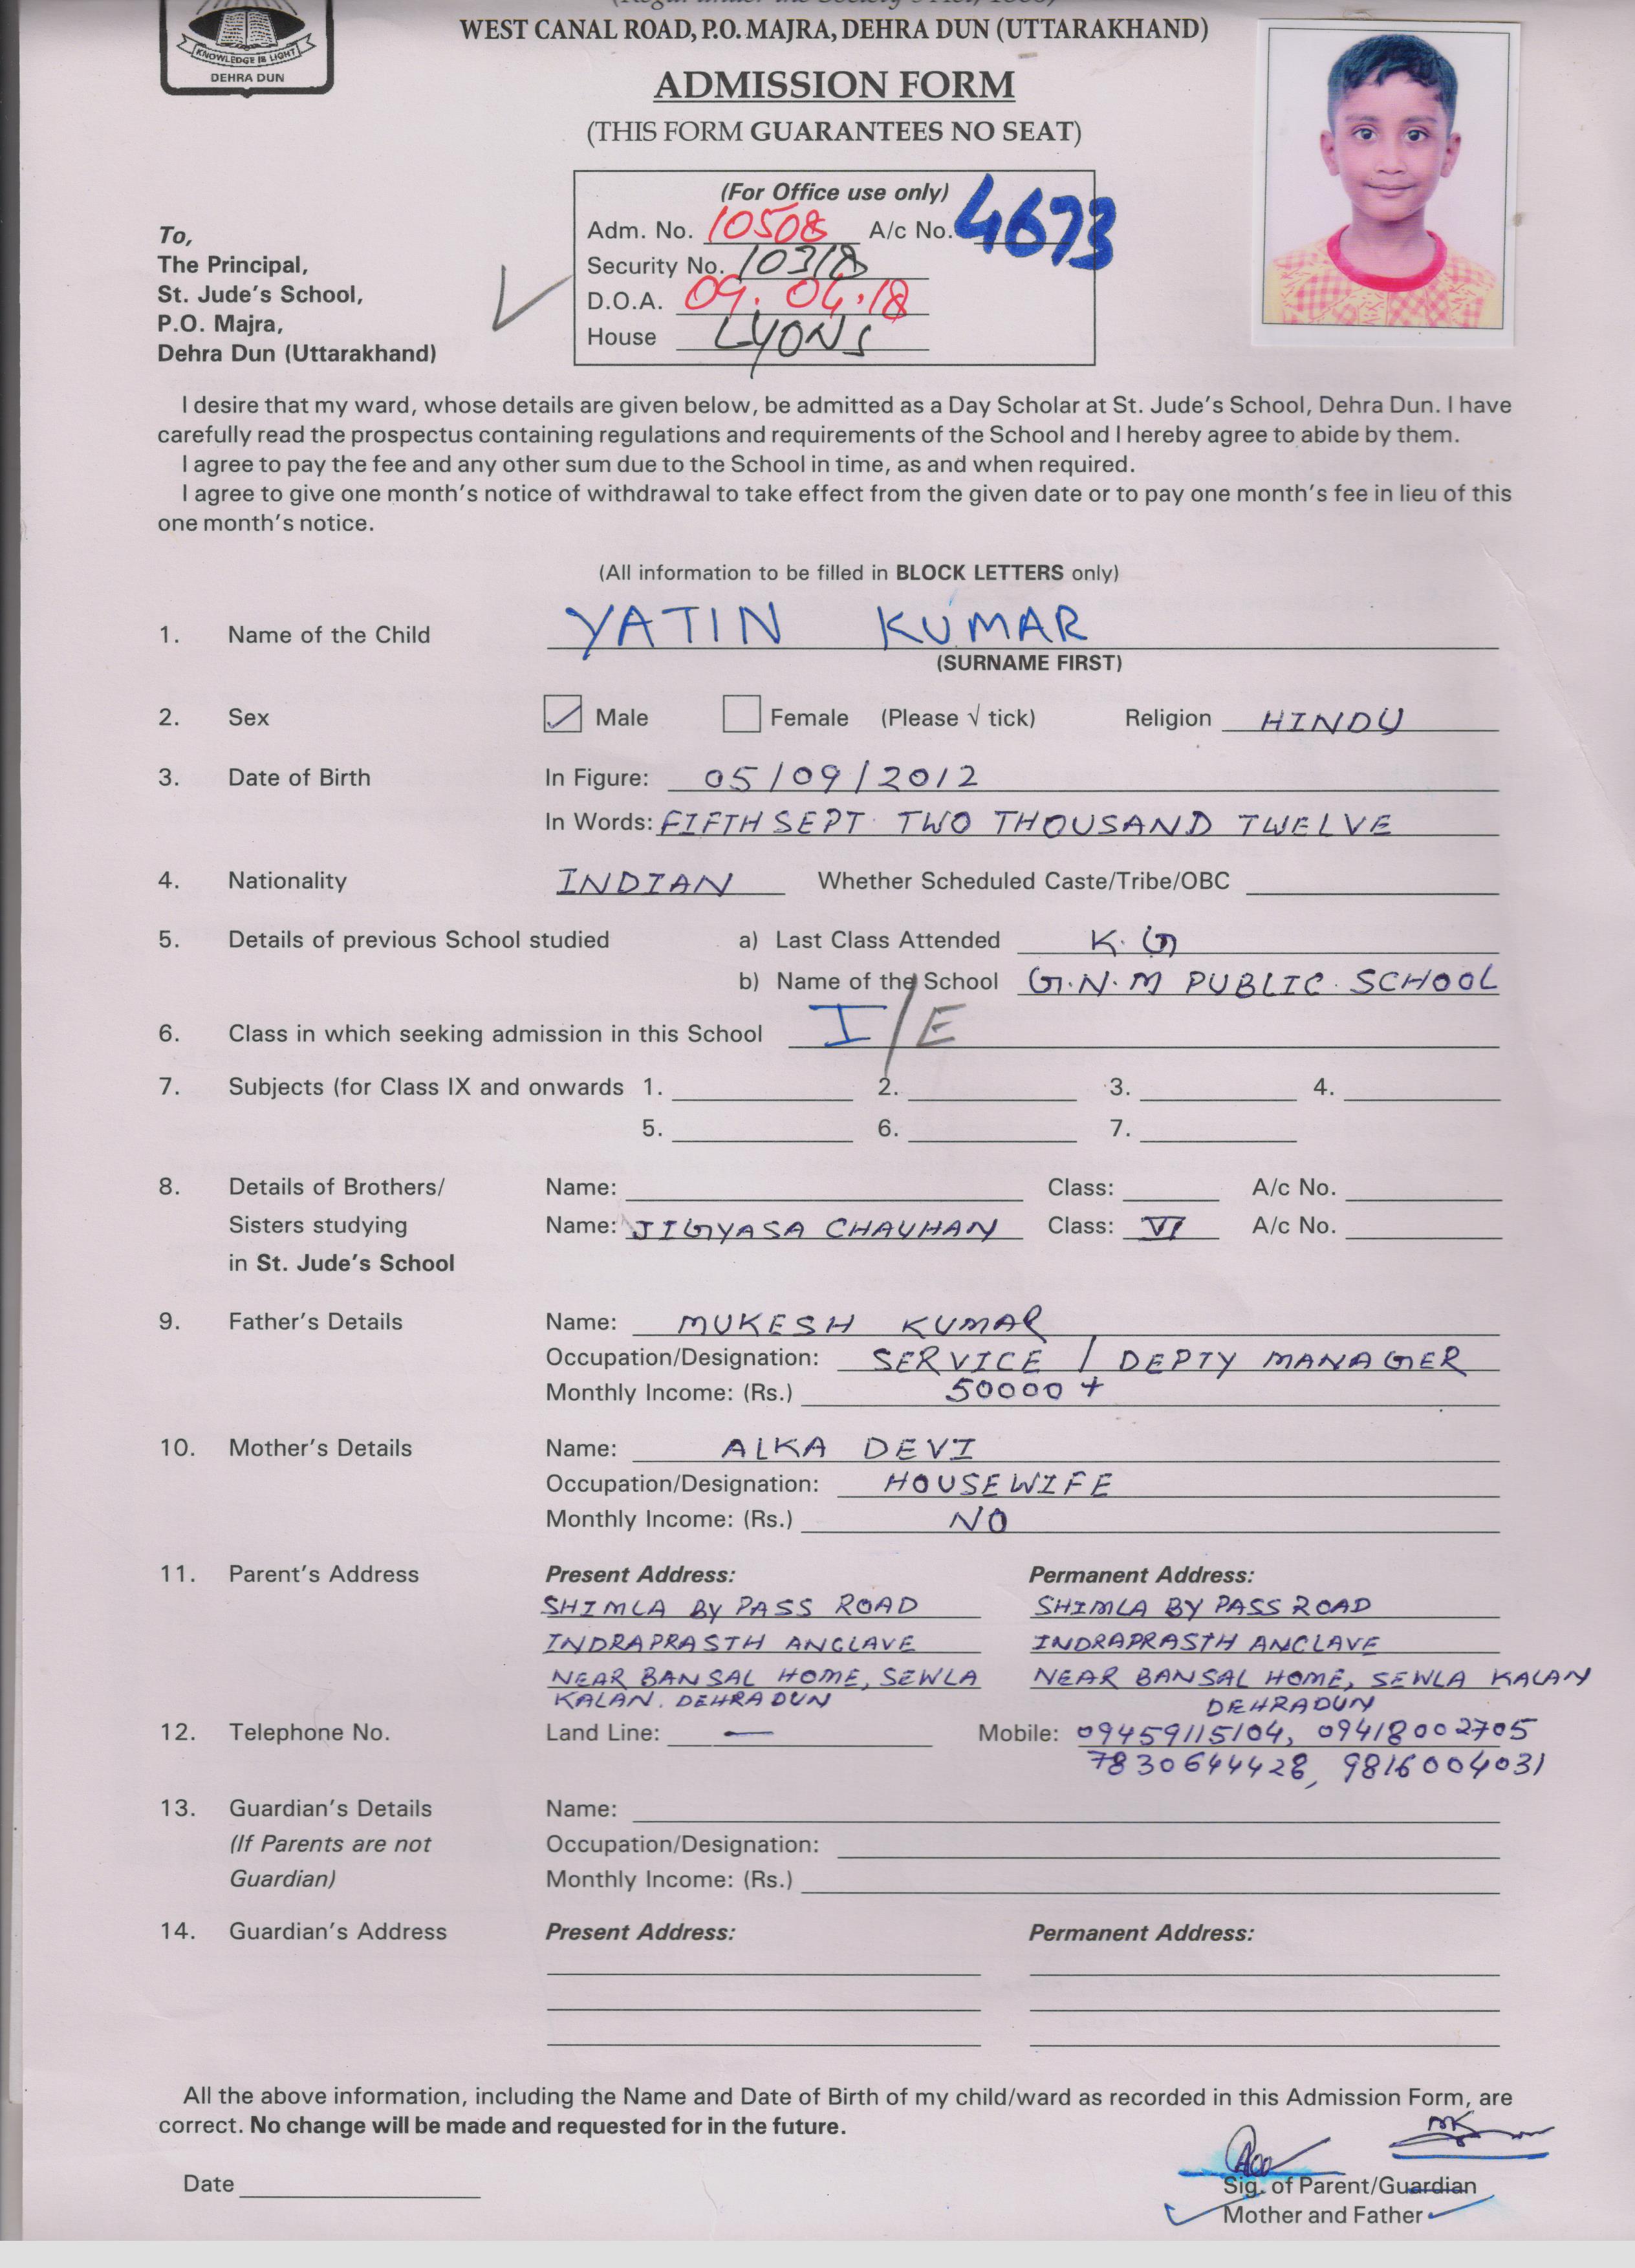 KNOWLEDGE IS LIGHT
DEHRA DUN
WEST CANAL ROAD, P.O. MAJRA, DEHRA DUN (UTTARAKHAND)
ADMISSION FORM
(THIS FORM GUARANTEES NO SEAT)
(For Office use only)
Adm. No. 10508 A/c No. 4673
Security No. 10318
D.O.A. 09.04.18
House LYONS
To,
The Principal,
St. Jude's School,
P.O. Majra,
Dehra Dun (Uttarakhand)
I desire that my ward, whose details are given below, be admitted as a Day Scholar at St. Jude's School, Dehra Dun. I have
carefully read the prospectus containing regulations and requirements of the School and I hereby agree to abide by them.
I agree to pay the fee and any other sum due to the School in time, as and when required.
I agree to give one month's notice of withdrawal to take effect from the given date or to pay one month's fee in lieu of this
one month's notice.
(All information to be filled in BLOCK LETTERS only)
1. Name of the Child YATIN KUMAR
(SURNAME FIRST)
2. Sex Male Female (Please √ tick) Religion HINDU
3. Date of Birth In Figure: 05/09/2012
In Words: FIFTH SEPT. TWO THOUSAND TWELVE
4. Nationality INDIAN Whether Scheduled Caste/Tribe/OBC
5. Details of previous School studied a) Last Class Attended K.G
b) Name of the School G.N.M PUBLIC SCHOOL
6. Class in which seeking admission in this School I/E
7. Subjects (for Class IX and onwards 1. 2. 3. 4.
5. 6. 7.
8. Details of Brothers/ Name: Class: A/c No.
Sisters studying Name: JIGYASA CHAUHAN Class: VI A/c No.
in St. Jude's School
9. Father's Details Name: MUKESH KUMAR
Occupation/Designation: SERVICE / DEPTY MANAGER
Monthly Income: (Rs.) 50000 +
10. Mother's Details Name: ALKA DEVI
Occupation/Designation: HOUSEWIFE
Monthly Income: (Rs.) NO
11. Parent's Address Present Address: Permanent Address:
SHIMLA BY PASS ROAD SHIMLA BY PASS ROAD
INDRAPRASTH ANCLAVE INDRAPRASTH ANCLAVE
NEAR BANSAL HOME, SEWLA NEAR BANSAL HOME, SEWLA KALAN
KALAN. DEHRADUN DEHRADUN
12. Telephone No. Land Line: — Mobile: 09459115104, 09418002705
7830644428, 9816004031
13. Guardian's Details Name:
(If Parents are not Occupation/Designation:
Guardian) Monthly Income: (Rs.)
14. Guardian's Address Present Address: Permanent Address:
All the above information, including the Name and Date of Birth of my child/ward as recorded in this Admission Form, are
correct. No change will be made and requested for in the future.
Date Sig. of Parent/Guardian
Mother and Father